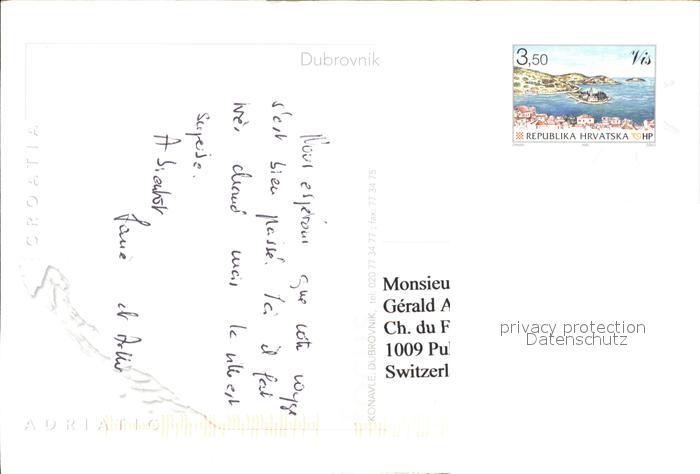 Dubrovnik
3,50
Vis
REPUBLIKA HRVATSKA HP
Nous espérons que votre voyage
s'est bien passé. Ici il fait
très chaud mais la ville est
superbe.
A bientôt
et
KONAVLE, DUBROVNIK, tel: 020 77 34 77 ; fax: 77 34 75
CROATIA
ADRIATIC
Monsieu
Gérald A
Ch. du F
1009 Pul
Switzerl
privacy protection
Datenschutz